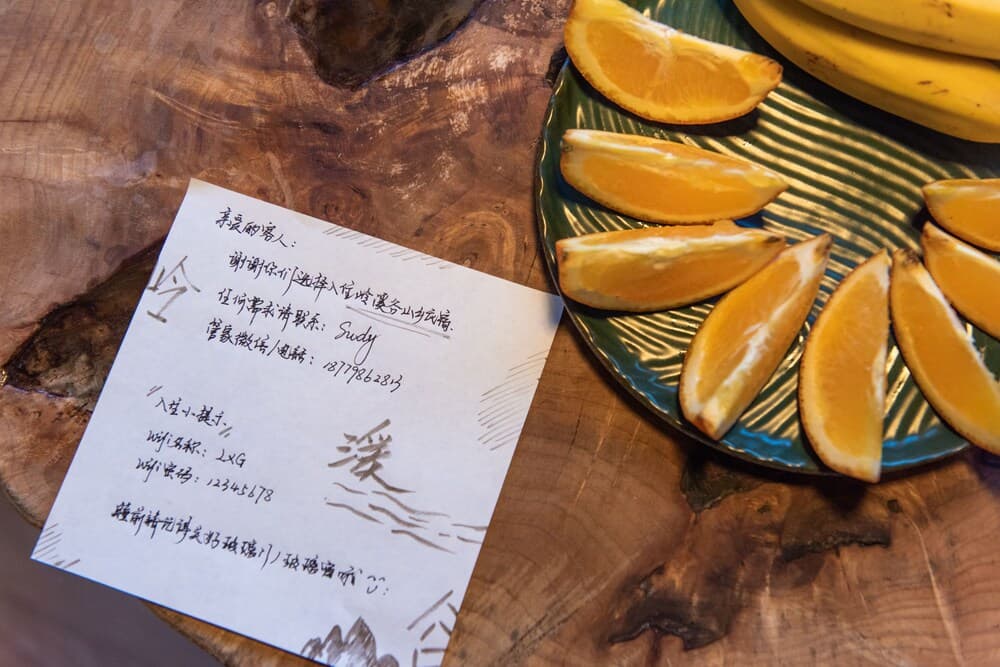 亲爱的客人：
谢谢你们选择入住冷溪谷山乡民宿.
任何需求请联系：Sudy
管家微信/电话：18779862813
"入住小提示"
Wifi名称：LXG
Wifi密码：12345678
睡前请记得关好玻璃门/玻璃窗哦
冷
溪
谷